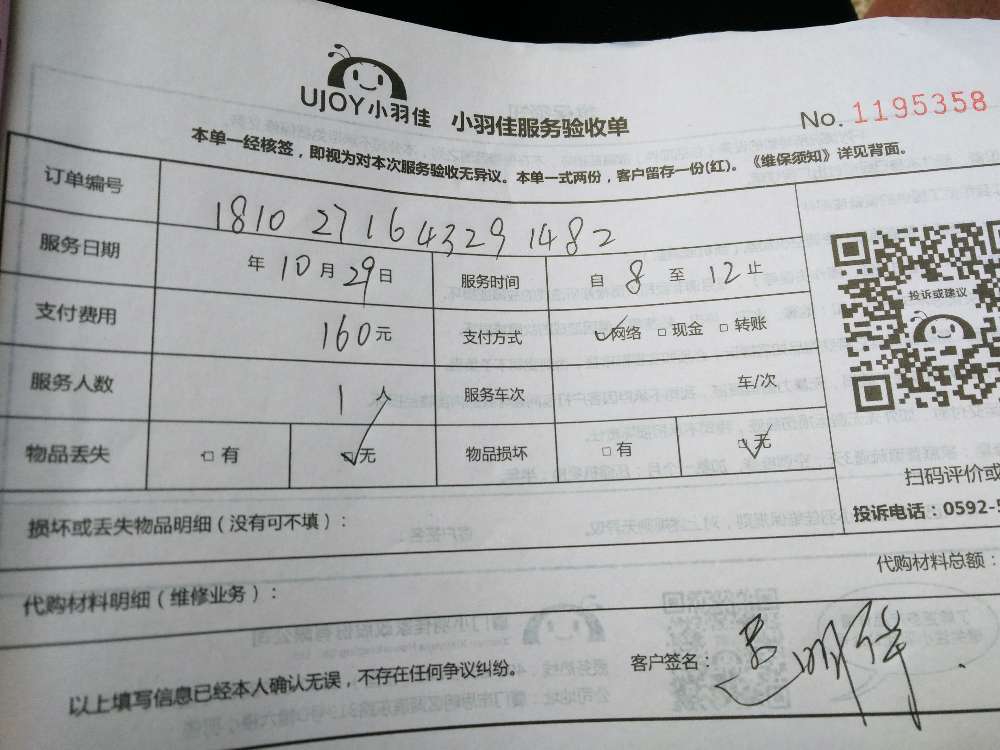 UJOY小羽佳 小羽佳服务验收单
No. 1195358
本单一经核签，即视为对本次服务验收无异议。本单一式两份，客户留存一份(红)。《维保须知》详见背面。
订单编号 1810271643291482
服务日期 年10月29日 服务时间 自8至12止
支付费用 160元 支付方式 网络 现金 转账
服务人数 1人 服务车次 车/次
物品丢失 有 无 物品损坏 有 无
投诉或建议
扫码评价或
投诉电话：0592-5
损坏或丢失物品明细（没有可不填）：
代购材料明细（维修业务）：
代购材料总额：
以上填写信息已经本人确认无误，不存在任何争议纠纷。
客户签名：